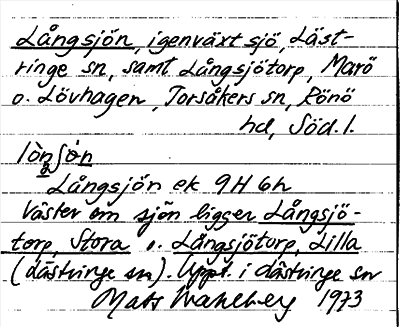 Långsjön, igenväxt sjö, Läst-
ringe sn, samt Långsjötorp, Marö
o. Lövhagen, Torsåkers sn, Rönö
hd, Söd. l.
Långsjön ek 9H 6h
Väster om sjön ligger Långsjö-
torp, Stora o. Långsjötorp, Lilla
(Lästringe sn). Uppt. i Lästringe sn
Mats 1973